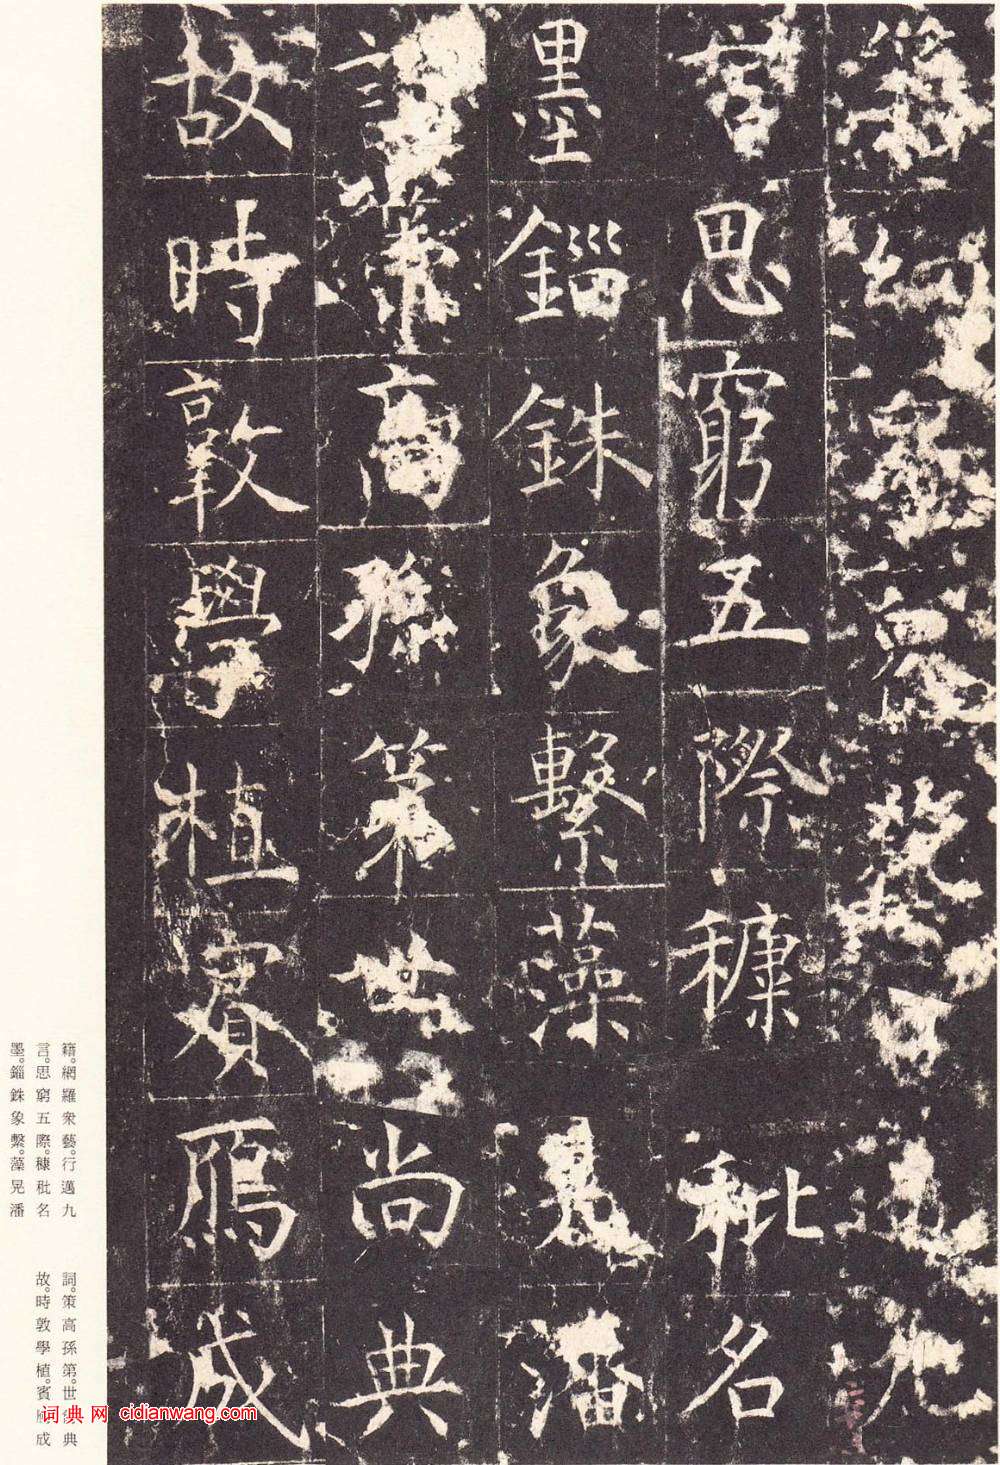 籍網羅衆藝行邁九
言思窮五際穅秕名
墨錙銖象繫藻晃潘
詞策高孫第世尚典
故時敦學植賓鴈成
籍。網羅衆藝。行邁九
言。思窮五際。穅秕名
墨。錙銖象繫。藻晃潘
詞。策高孫第。世尚典
故。時敦學植。賓鴈成
词典网 cidianwang.com